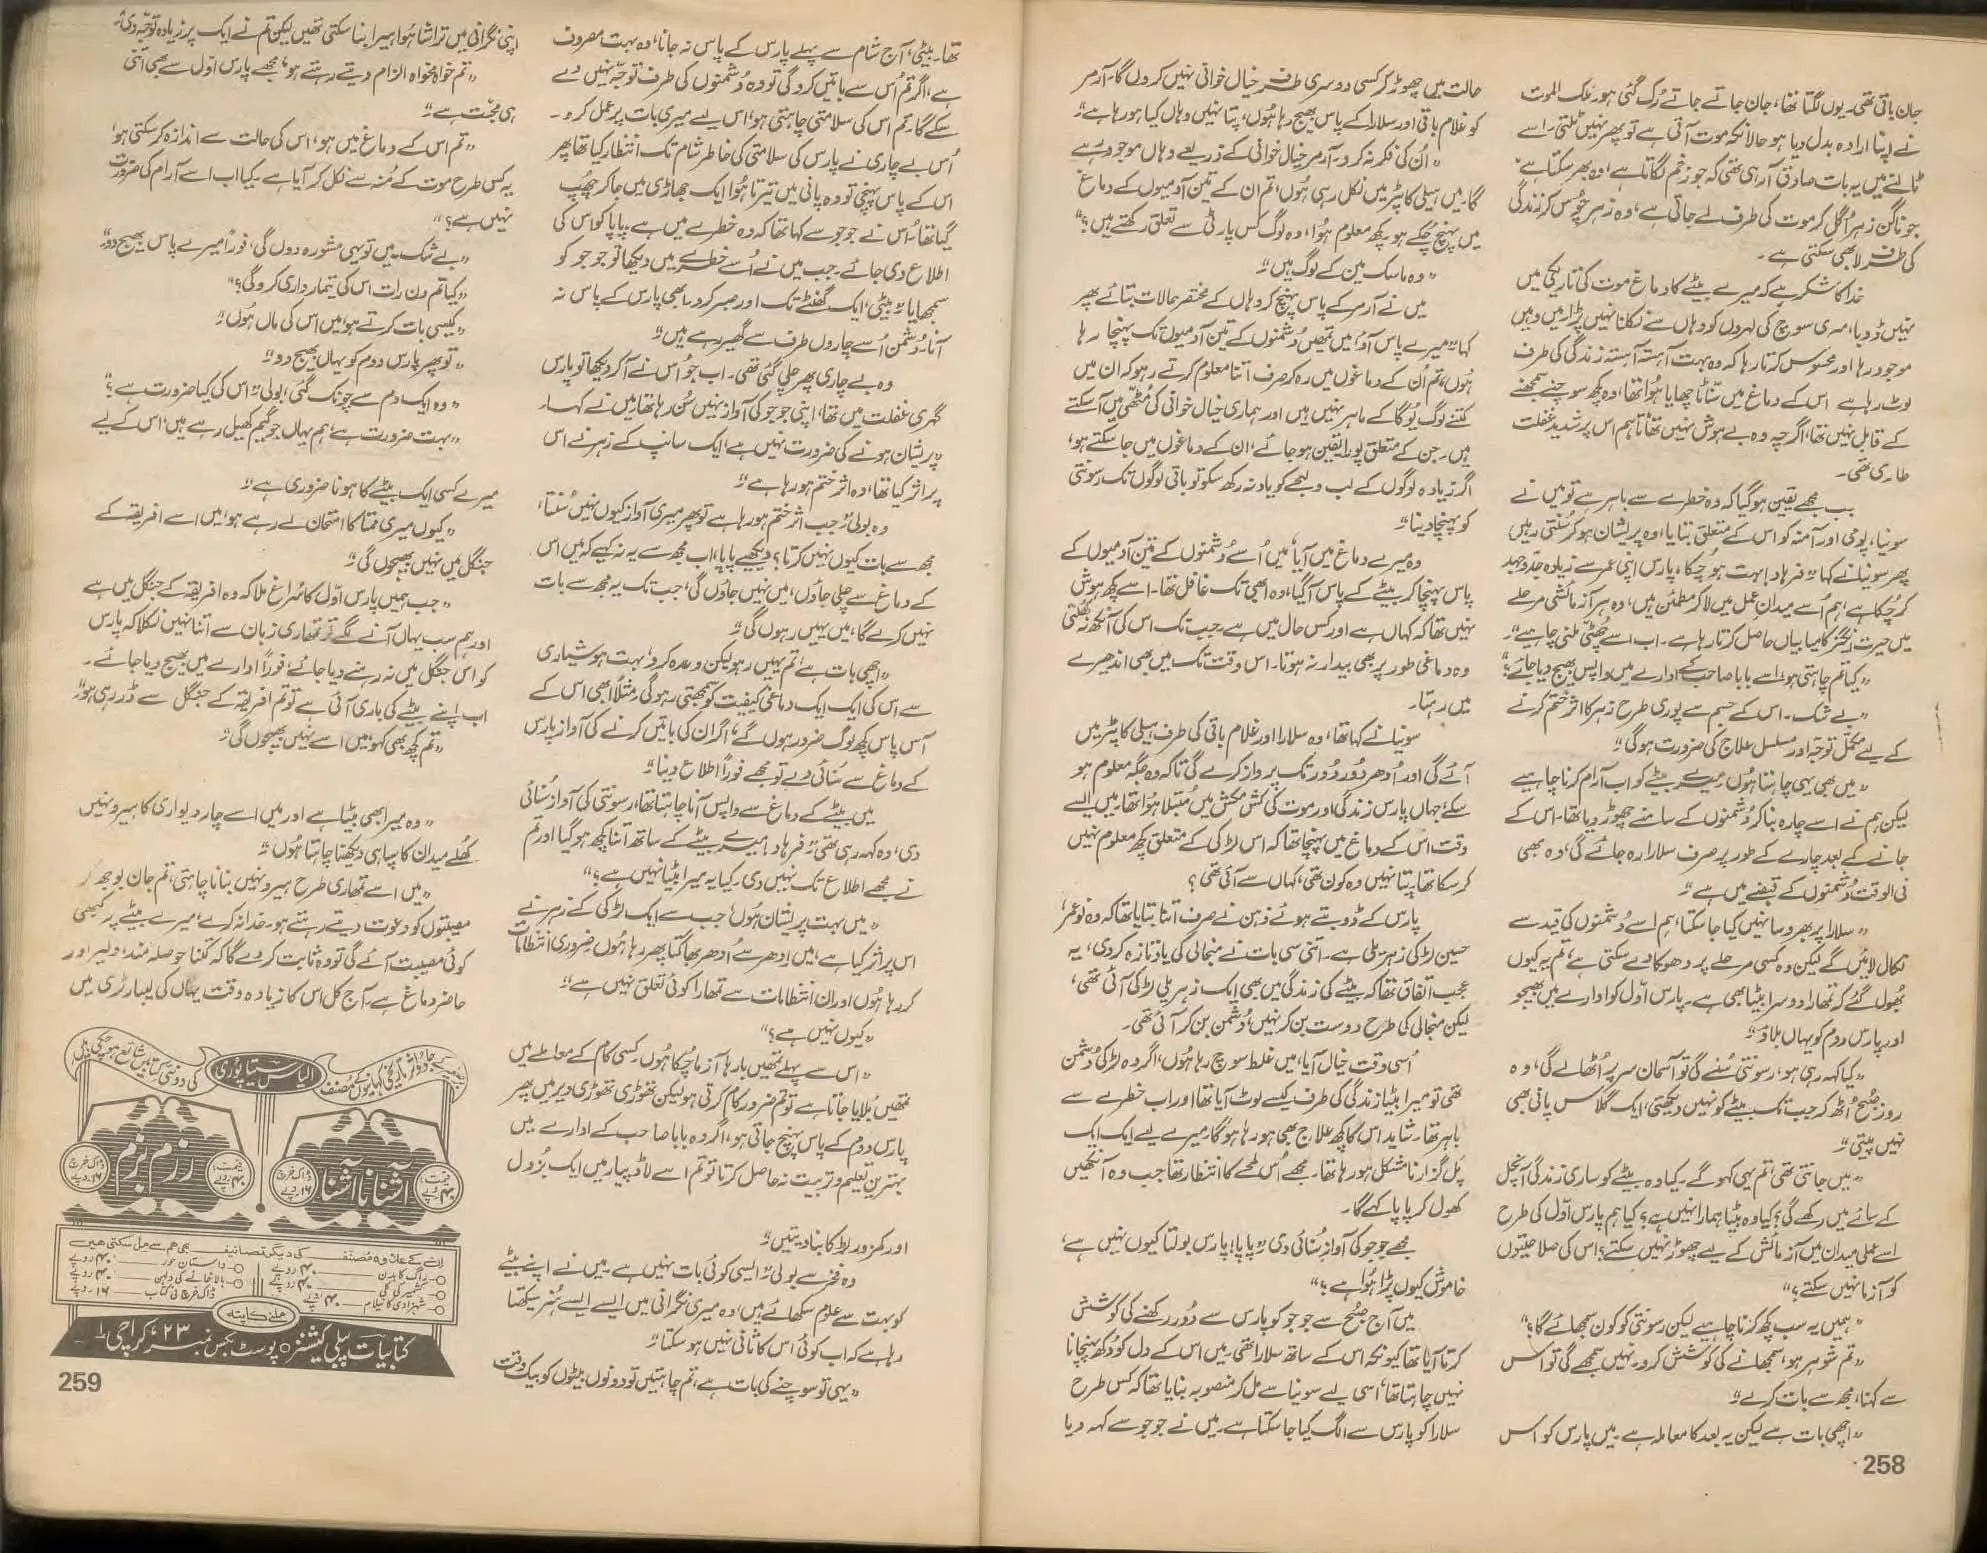 جان باقی تھی۔ یوں لگتا تھا، جان جاتے جاتے رُک گئی ہو۔ ملک الموت
نے اپنا ارادہ بدل دیا ہو حالانکہ موت آتی ہے تو پھر نہیں ٹلتی۔ اسے
ٹالنے میں یہ بات صادق آ رہی تھی کہ جو زخم لگاتا ہے، وہ بھر سکتا ہے۔
جو ناگن زہر اُگل کر موت کی طرف لے جاتی ہے، وہ زہر چُوس کر زندگی
کی طرف لا بھی سکتی ہے۔
خدا کا شکر ہے کہ میرے بیٹے کا دماغ موت کی تاریکی میں
نہیں ڈوبا، میری سوچ کی لہروں کو وہاں سے نکلنا نہیں پڑا۔ میں وہیں
موجود رہا اور محسوس کرتا رہا کہ وہ بہت آہستہ آہستہ زندگی کی طرف
لوٹ رہا ہے۔ اس کے دماغ میں سناٹا چھایا ہُوا تھا، وہ کچھ سوچنے سمجھنے
کے قابل نہیں تھا، اگرچہ وہ بے ہوش نہیں تھا تاہم اس پر شدید غفلت
طاری تھی۔
جب مجھے یقین ہو گیا کہ وہ خطرے سے باہر ہے تو میں نے
سونیا، پومی اور آمنہ کو اس کے متعلق بتایا، وہ پریشان ہو کر سُنتی رہیں
پھر سونیا نے کہا "فرہاد! بہت ہو چکا، پارس اپنی عمر سے زیادہ جدوجہد
کر چُکا ہے، ہم اُسے میدانِ عمل میں لا کر مطمئن ہیں، وہ ہر آزمائشی مرحلے
میں حیرت انگیز کامیابیاں حاصل کرتا رہا ہے۔ اب اسے چھٹی ملنی چاہیے۔"
"کیا تم چاہتی ہو، اسے بابا صاحب کے ادارے میں واپس بھیج دیا جائے؟"
"بے شک۔ اس کے جسم سے پوری طرح زہر کا اثر ختم کرنے
کے لیے مکمل توجہ اور مسلسل علاج کی ضرورت ہو گی۔"
"میں بھی یہی چاہتا ہوں، میرے بیٹے کو اب آرام کرنا چاہیے
لیکن ہم نے اسے چارہ بنا کر دُشمنوں کے سامنے چھوڑ دیا تھا۔ اس کے
جانے کے بعد چارے کے طور پر صرف سلارا رہ جائے گی، وہ بھی
فی الوقت دُشمنوں کے قبضے میں ہے۔"
"سلارا پر بھروسا نہیں کیا جا سکتا، ہم اسے دُشمنوں کی قید سے
نکال لائیں گے لیکن وہ کسی مرحلے پر دھوکا دے سکتی ہے، تم یہ کیوں
بُھول گئے کہ تمھارا دوسرا بیٹا بھی ہے۔ پارس اوّل کو ادارے میں بھیجو
اور پارس دوم کو یہاں بلاؤ۔"
"کیا کہہ رہی ہو، رسونتی سُنے گی تو آسمان سر پر اُٹھا لے گی، وہ
روز صُبح اُٹھ کر جب تک بیٹے کو نہیں دیکھتی، ایک گلاس پانی بھی
نہیں پیتی۔"
"میں جانتی تھی، تم یہی کہو گے۔ کیا وہ بیٹے کو ساری زندگی آنچل
کے سائے میں رکھے گی؟ کیا وہ بیٹا ہمارا نہیں ہے؟ کیا ہم پارس اوّل کی طرح
اسے عملی میدان میں آزمائش کے لیے چھوڑ نہیں سکتے؟ اس کی صلاحیتوں
کو آزما نہیں سکتے؟"
"ہمیں یہ سب کچھ کرنا چاہیے لیکن رسونتی کو کون سمجھائے گا؟"
"تم شوہر ہو، سمجھانے کی کوشش کرو۔ نہیں سمجھے گی تو اس
سے کہنا، مجھ سے بات کرے۔"
"اچھی بات ہے لیکن یہ بعد کا معاملہ ہے۔ میں پارس کو اس
حالت میں چھوڑ کر کسی دوسری طرف خیال خوانی نہیں کروں گا۔ آرمر
کو غلام باقی اور سلارا کے پاس بھیج رہا ہوں، پتا نہیں وہاں کیا ہو رہا ہے۔"
"اُن کی فکر نہ کرو۔ آرمر خیال خوانی کے ذریعے وہاں موجود رہے
گا۔ میں ہیلی کاپٹر میں نکل رہی ہوں، تم ان کے تین آدمیوں کے دماغ
میں پہنچ چُکے ہو۔ کچھ معلوم ہُوا، وہ لوگ کس پارٹی سے تعلق رکھتے ہیں؟"
"وہ ماسک مین کے لوگ ہیں۔"
میں نے آرمر کے پاس پہنچ کر وہاں کے مختصر حالات بتائے پھر
کہا "میرے پاس آؤ، میں تمھیں دُشمنوں کے تین آدمیوں تک پہنچا رہا
ہوں، تم اُن کے دماغوں میں رہ کر صرف اتنا معلوم کرتے رہو کہ ان میں
کتنے لوگ یوگا کے ماہر نہیں ہیں اور ہماری خیال خوانی کی مٹھی میں آ سکتے
ہیں۔ جن کے متعلق پورا یقین ہو جائے، ان کے دماغوں میں جا سکتے ہو،
اگر زیادہ لوگوں کے لب و لہجے کو یاد نہ رکھ سکو تو باقی لوگوں تک رسونتی
کو پہنچا دینا۔"
وہ میرے دماغ میں آیا، میں اُسے دُشمنوں کے تین آدمیوں کے
پاس پہنچا کر بیٹے کے پاس آ گیا، وہ ابھی تک غافل تھا۔ اسے کچھ ہوش
نہیں تھا کہ کہاں ہے اور کس حال میں ہے۔ جب تک اس کی آنکھ نہ کھلتی
وہ دماغی طور پر بھی بیدار نہ ہوتا۔ اس وقت تک میں بھی اندھیرے
میں رہتا۔
سونیا نے کہا تھا، وہ سلارا اور غلام باقی کی طرف ہیلی کاپٹر میں
آئے گی اور اُدھر دُور دُور تک پرواز کرے گی تاکہ وہ جگہ معلوم ہو
سکے جہاں پارس زندگی اور موت کی کش مکش میں مُبتلا ہُوا تھا۔ میں ایسے
وقت اس کے دماغ میں پہنچا تھا کہ اس لڑکی کے متعلق کچھ معلوم نہیں
کر سکا تھا۔ پتا نہیں وہ کون تھی، کہاں سے آئی تھی؟
پارس کے ڈوبتے ہوئے ذہن نے صرف اتنا بتایا تھا کہ وہ نوعمر،
حسین لڑکی زہریلی ہے۔ اتنی سی بات نے منجالی کی یاد تازہ کر دی، یہ
عجب اتفاق تھا کہ بیٹے کی زندگی میں بھی ایک زہریلی لڑکی آئی تھی،
لیکن منجالی کی طرح دوست بن کر نہیں، دُشمن بن کر آئی تھی۔
اُسی وقت خیال آیا، میں غلط سوچ رہا ہوں، اگر وہ لڑکی دُشمن
تھی تو میرا بیٹا زندگی کی طرف کیسے لوٹ آیا تھا اور اب خطرے سے
باہر تھا۔ شاید اس کا کچھ علاج بھی ہو رہا ہو گا۔ میرے لیے ایک ایک
پَل گزارنا مشکل ہو رہا تھا۔ مجھے اُس لمحے کا انتظار تھا جب وہ آنکھیں
کھول کر پاپا کہے گا۔
مجھے جوجو کی آواز سُنائی دی "پاپا! پارس بولتا کیوں نہیں ہے،
خاموش کیوں پڑا ہُوا ہے؟"
میں آج صُبح سے جوجو کو پارس سے دُور رکھنے کی کوشش
کرتا آیا تھا کیونکہ اس کے ساتھ سلارا تھی۔ میں اس کے دل کو دُکھ پہنچانا
نہیں چاہتا تھا، اسی لیے سونیا سے مل کر منصوبہ بنایا تھا کہ کس طرح
سلارا کو پارس سے الگ کیا جا سکتا ہے۔ میں نے جوجو سے کہہ دیا
258
تھا۔ بیٹی، آج شام سے پہلے پارس کے پاس نہ جانا، وہ بہت مصروف
ہے، اگر تم اُس سے باتیں کرو گی تو وہ دُشمنوں کی طرف توجہ نہیں دے
سکے گا۔ تم اس کی سلامتی چاہتی ہو، اس لیے میری بات پر عمل کرو۔
اُس بے چاری نے پارس کی سلامتی کی خاطر شام تک انتظار کیا تھا پھر
اس کے پاس پہنچی تو وہ پانی میں تیرتا ہُوا ایک جھاڑی میں جا کر چھپ
گیا تھا۔ اس نے جوجو سے کہا تھا کہ وہ خطرے میں ہے۔ پاپا کو اس کی
اطلاع دی جائے۔ جب میں نے اُسے خطرے میں دیکھا تو جوجو کو
سمجھایا "بیٹی، ایک گھنٹے تک اور صبر کرو۔ ابھی پارس کے پاس نہ
آنا، دُشمن اُسے چاروں طرف سے گھیر رہے ہیں۔"
وہ بے چاری پھر چلی گئی تھی۔ اب جو اس نے آ کر دیکھا تو پارس
گہری غفلت میں تھا، اپنی جوجو کی آواز نہیں سُن رہا تھا۔ میں نے کہا۔
"پریشان ہونے کی ضرورت نہیں ہے، ایک سانپ کے زہر نے اس
پر اثر کیا تھا، وہ اثر ختم ہو رہا ہے۔"
وہ بولی "جب اثر ختم ہو رہا ہے تو پھر میری آواز کیوں نہیں سُنتا،
مجھ سے بات کیوں نہیں کرتا؟ دیکھیے پاپا، اب مجھ سے یہ نہ کہیے کہ میں اس
کے دماغ سے چلی جاؤں، میں نہیں جاؤں گی، جب تک یہ مجھ سے بات
نہیں کرے گا، میں یہیں رہوں گی۔"
"اچھی بات ہے، تم یہیں رہو لیکن وعدہ کرو، بہت ہوشیاری
سے اس کی ایک ایک دماغی کیفیت کو سمجھتی رہو گی۔ مثلاً ابھی اس کے
آس پاس کچھ لوگ ضرور ہوں گے، اگر ان کی باتیں کرنے کی آواز پارس
کے دماغ سے سُنائی دے تو مجھے فوراً اطلاع دینا۔"
میں بیٹے کے دماغ سے واپس آنا چاہتا تھا، رسونتی کی آواز سُنائی
دی، وہ کہہ رہی تھی "فرہاد! میرے بیٹے کے ساتھ اتنا کچھ ہو گیا اور تم
نے مجھے اطلاع تک نہیں دی۔ کیا یہ میرا بیٹا نہیں ہے؟"
"میں بہت پریشان ہوں، جب سے ایک لڑکی کے زہر نے
اس پر اثر کیا ہے، میں اِدھر سے اُدھر بھاگتا پھر رہا ہوں۔ ضروری انتظامات
کر رہا ہوں اور ان انتظامات سے تمھارا کوئی تعلق نہیں ہے۔"
"کیوں نہیں ہے؟"
"اس سے پہلے تمھیں بارہا آزما چُکا ہوں۔ کسی کام کے معاملے میں
تمھیں بُلایا جاتا ہے تو تم ضرور کام کرتی ہو لیکن تھوڑی تھوڑی دیر میں پھر
پارس دوم کے پاس پہنچ جاتی ہو، اگر وہ بابا صاحب کے ادارے میں
بہترین تعلیم و تربیت نہ حاصل کرتا تو تم اسے لاڈ پیار میں ایک بُزدل
اور کمزور لڑکا بنا دیتیں۔"
وہ فخر سے بولی "ایسی کوئی بات نہیں ہے۔ میں نے اپنے بیٹے
کو بہت سے علوم سکھائے ہیں، وہ میری نگرانی میں ایسے ایسے ہُنر سیکھتا
رہا ہے کہ اب کوئی اس کا ثانی نہیں ہو سکتا۔"
"یہی تو سوچنے کی بات ہے، تم چاہتیں تو دونوں بیٹوں کو بیک وقت
اپنی نگرانی میں تراشا ہُوا ہیرا بنا سکتی تھیں لیکن تم نے ایک پر زیادہ توجہ دی۔"
"تم خواہ مخواہ الزام دیتے رہتے ہو، مجھے پارس اوّل سے بھی اتنی
ہی محبت ہے۔"
"تم اس کے دماغ میں ہو، اس کی حالت سے اندازہ کر سکتی ہو،
یہ کس طرح موت کے مُنہ سے نکل کر آیا ہے۔ کیا اب اسے آرام کی ضرورت
نہیں ہے؟"
"بے شک۔ میں تو یہی مشورہ دوں گی، فوراً میرے پاس بھیج دو۔"
"کیا تم دن رات اس کی تیمارداری کرو گی؟"
"کیسی بات کرتے ہو، میں اس کی ماں ہوں۔"
"تو پھر پارس دوم کو یہاں بھیج دو۔"
"وہ ایک دم سے چونک گئی، بولی "اس کی کیا ضرورت ہے؟"
"بہت ضرورت ہے، ہم یہاں جو گیم کھیل رہے ہیں، اس کے لیے
میرے کسی ایک بیٹے کا ہونا ضروری ہے۔"
"کیوں میری ممتا کا امتحان لے رہے ہو، میں اسے افریقہ کے
جنگل میں نہیں بھیجوں گی۔"
"جب ہمیں پارس اوّل کا سُراغ ملا کہ وہ افریقہ کے جنگل میں ہے
اور ہم سب یہاں آنے لگے تو تمھاری زبان سے اتنا نہیں نکلا کہ پارس
کو اس جنگل میں نہ رہنے دیا جائے، فوراً ادارے میں بھیج دیا جائے۔
اب اپنے بیٹے کی باری آئی ہے تو تم افریقہ کے جنگل سے ڈر رہی ہو۔"
"تم کچھ بھی کہو، میں اسے نہیں بھیجوں گی۔"
"وہ میرا بھی بیٹا ہے اور میں اسے چار دیواری کا ہیرو نہیں
کُھلے میدان کا سپاہی دیکھنا چاہتا ہوں۔"
"میں اسے تمھاری طرح ہیرو نہیں بنانا چاہتی، تم جان بوجھ کر
مصیبتوں کو دعوت دیتے رہتے ہو۔ خدا نہ کرے، میرے بیٹے پر کبھی
کوئی مصیبت آئے گی تو وہ ثابت کر دے گا کہ کتنا حوصلہ مند، دلیر اور
حاضر دماغ ہے۔ آج کل اس کا زیادہ وقت یہاں کی لیبارٹری میں
الیاس سیتاپوری
کی دو نئی کتابیں شائع ہو چکی ہیں
آشنا نا آشنا
رزم بزم
قیمت ۴۰ روپے
ڈاک خرچ ۱۶ روپے
ان کے علاوہ مصنف کی دیگر تصانیف بھی ہم سے مل سکتی ہیں
راگ کا بدن
داستان حور
بالاخانے کی دلہن
شہزادی کا نیلام
ڈاک خرچ فی کتاب ۱۶ روپے
ملنے کا پتہ
کتابیات پبلی کیشنز ○ پوسٹ بکس نمبر ۲۳، کراچی ۱
259